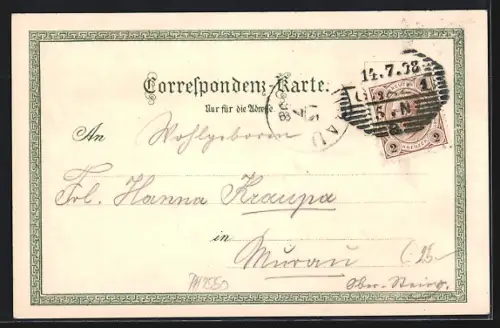 Correspondenz-Karte.
Nur für die Adresse.
14.7.98
1
2 2
An Wohlgeboren
Frl. Hanna Kraupa
in
Murau
Ober-Steierm.